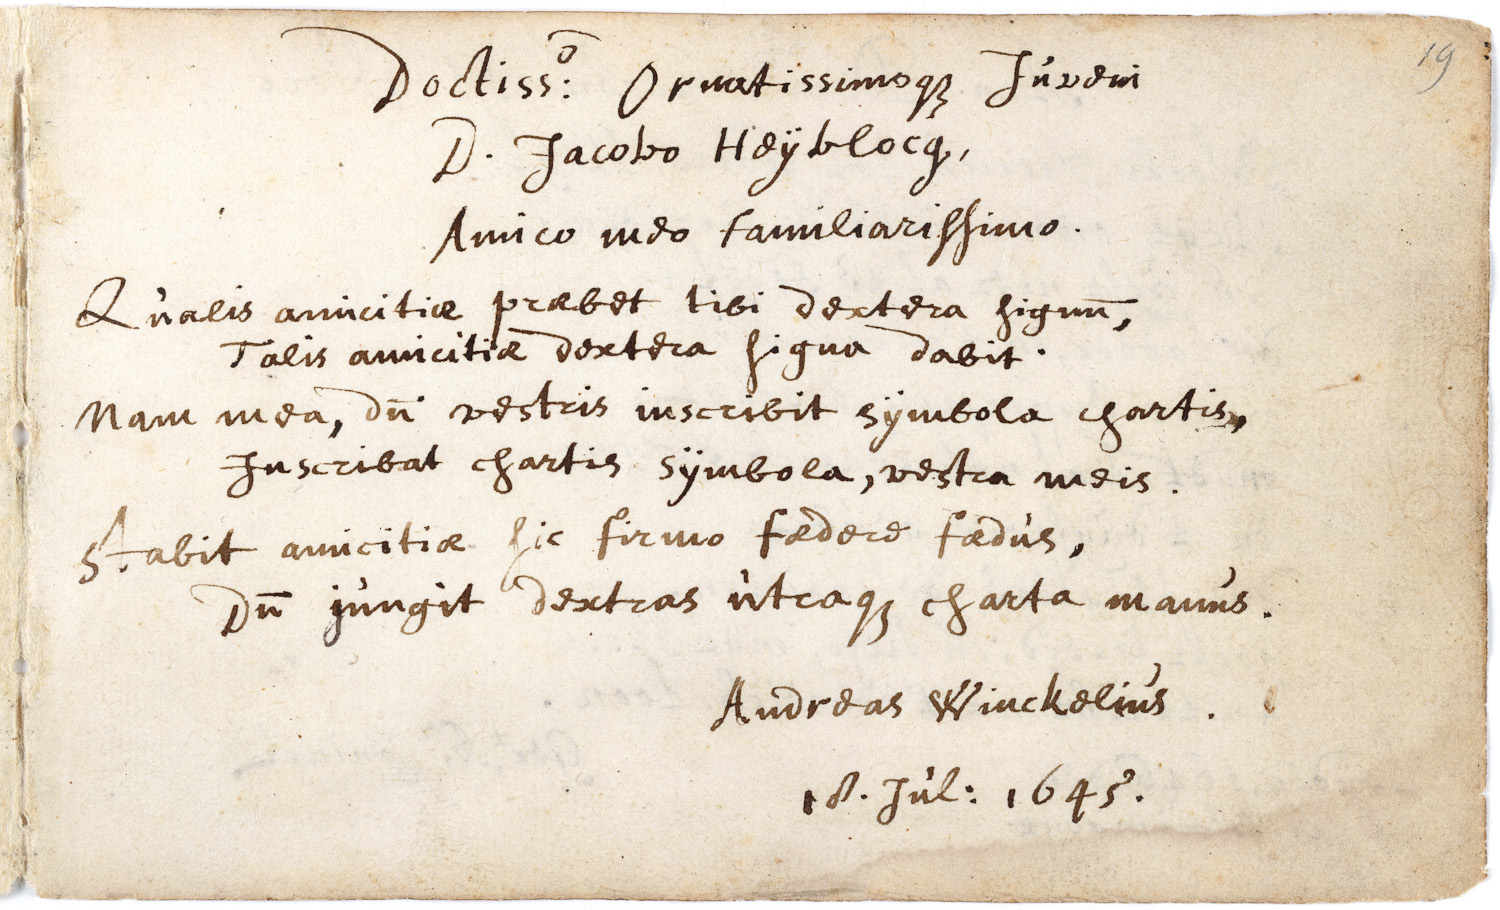 19
Doctiss:º Ornatissimoqꝫ Juveni
D. Jacobo Heÿblocq,
Amico meo familiarissimo.
Qualis amicitiæ præbet tibi dextera signū,
Talis amicitiæ dextera signa dabit.
Nam mea, dū vestris inscribit sÿmbola chartis,
Inscribat chartis sÿmbola, vestra meis.
Stabit amicitiæ hic firmo fædere fædus,
Dū jungit dextras utraqꝫ charta manus.
Andreas Winckelius.
18. Jul: 1645.